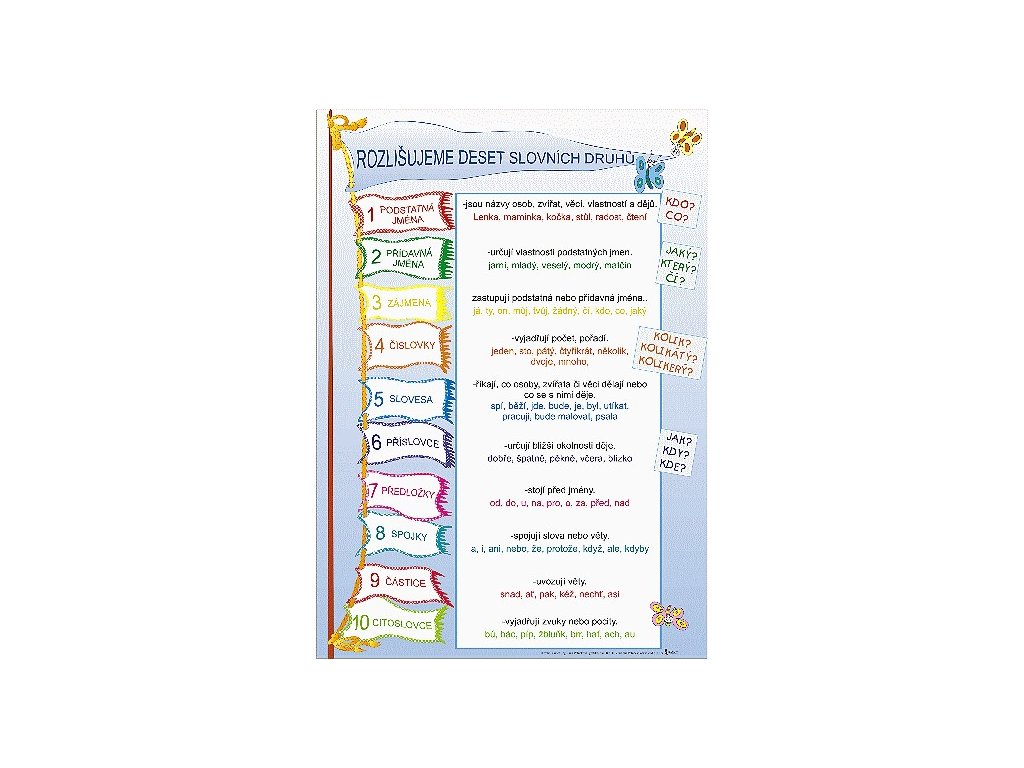 ROZLIŠUJEME DESET SLOVNÍCH DRUHŮ
1 PODSTATNÁ
JMÉNA
-jsou názvy osob, zvířat, věcí, vlastností a dějů.
Lenka, maminka, kočka, stůl, radost, čtení
KDO?
CO?
2 PŘÍDAVNÁ
JMÉNA
-určují vlastnosti podstatných jmen.
jarní, mladý, veselý, modrý, matčin
JAKÝ?
KTERÝ?
ČÍ?
3 ZÁJMENA
zastupují podstatná nebo přídavná jména..
já, ty, on, můj, tvůj, žádný, čí, kdo, co, jaký
4 ČÍSLOVKY
-vyjadřují počet, pořadí.
jeden, sto, pátý, čtyřikrát, několik,
dvoje, mnoho,
KOLIK?
KOLIKÁTÝ?
KOLIKERÝ?
5 SLOVESA
-říkají, co osoby, zvířata či věci dělají nebo
co se s nimi děje.
spí, běží, jde, bude, je, byl, utíkat,
pracují, bude malovat, psala
6 PŘÍSLOVCE
-určují bližší okolnosti děje.
dobře, špatně, pěkně, včera, blízko
JAK?
KDY?
KDE?
7 PŘEDLOŽKY
-stojí před jmény.
od, do, u, na, pro, o, za, před, nad
8 SPOJKY
-spojují slova nebo věty.
a, i, ani, nebo, že, protože, když, ale, kdyby
9 ČÁSTICE
-uvozují věty.
snad, ať, pak, kéž, nechť, asi
10 CITOSLOVCE
-vyjadřují zvuky nebo pocity.
bú, bác, píp, žbluňk, brr, haf, ach, au